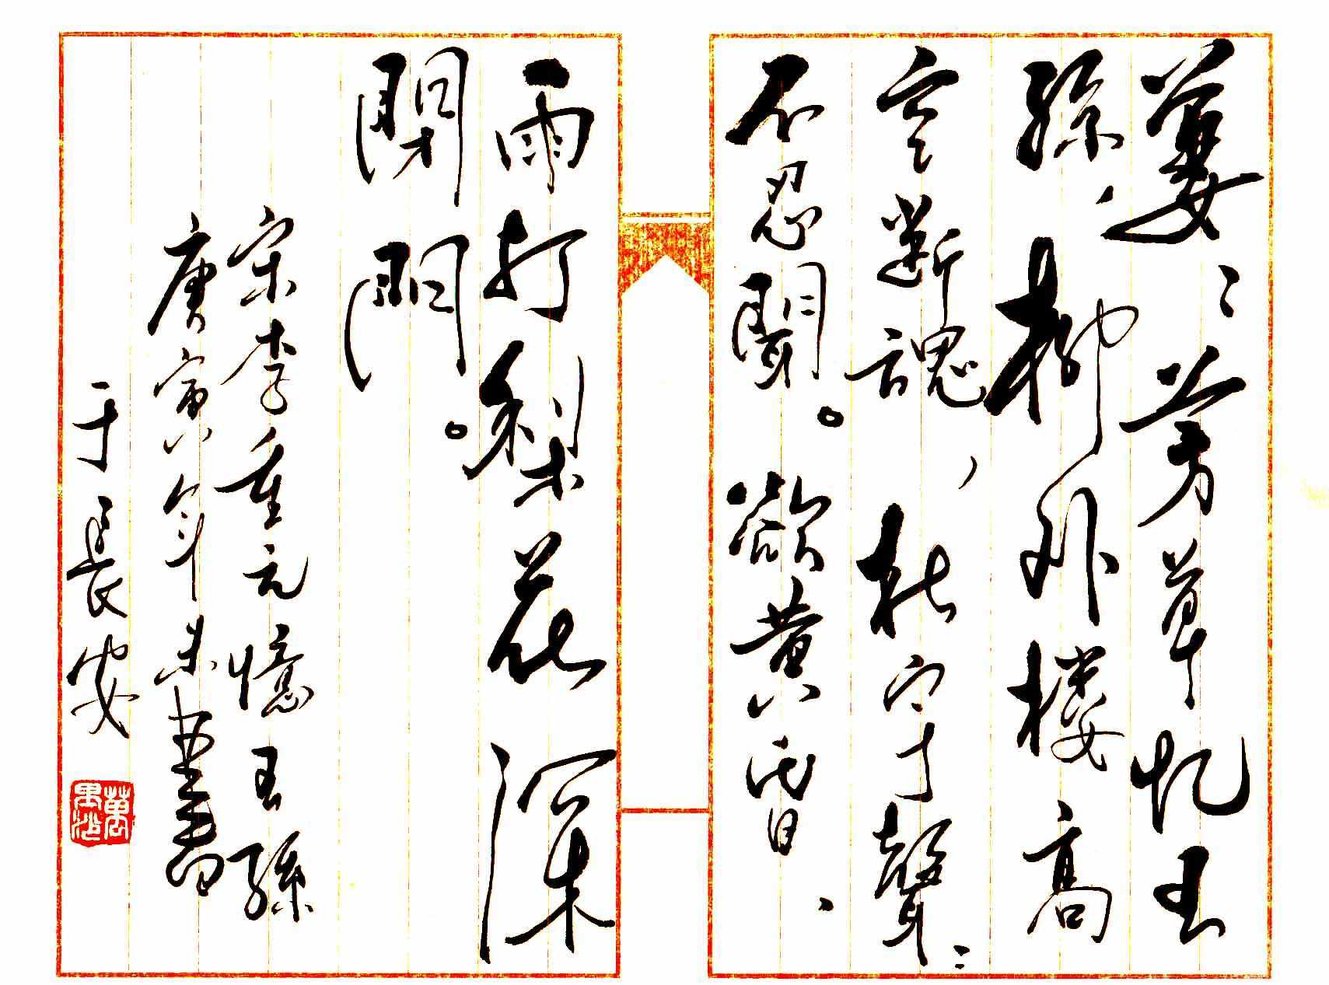 萋〻芳草忆王
孫，柳外楼高
空斷魂，杜宇聲〻
不忍聞。欲黄昏、
雨打梨花深
閉門。
宋李重元憶王孫
庚寅年末書
于長安